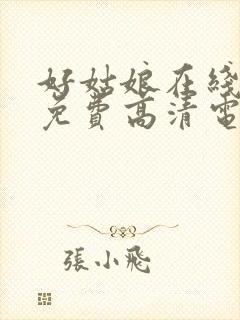 好姑娘在綫
免費高清電
張小飛